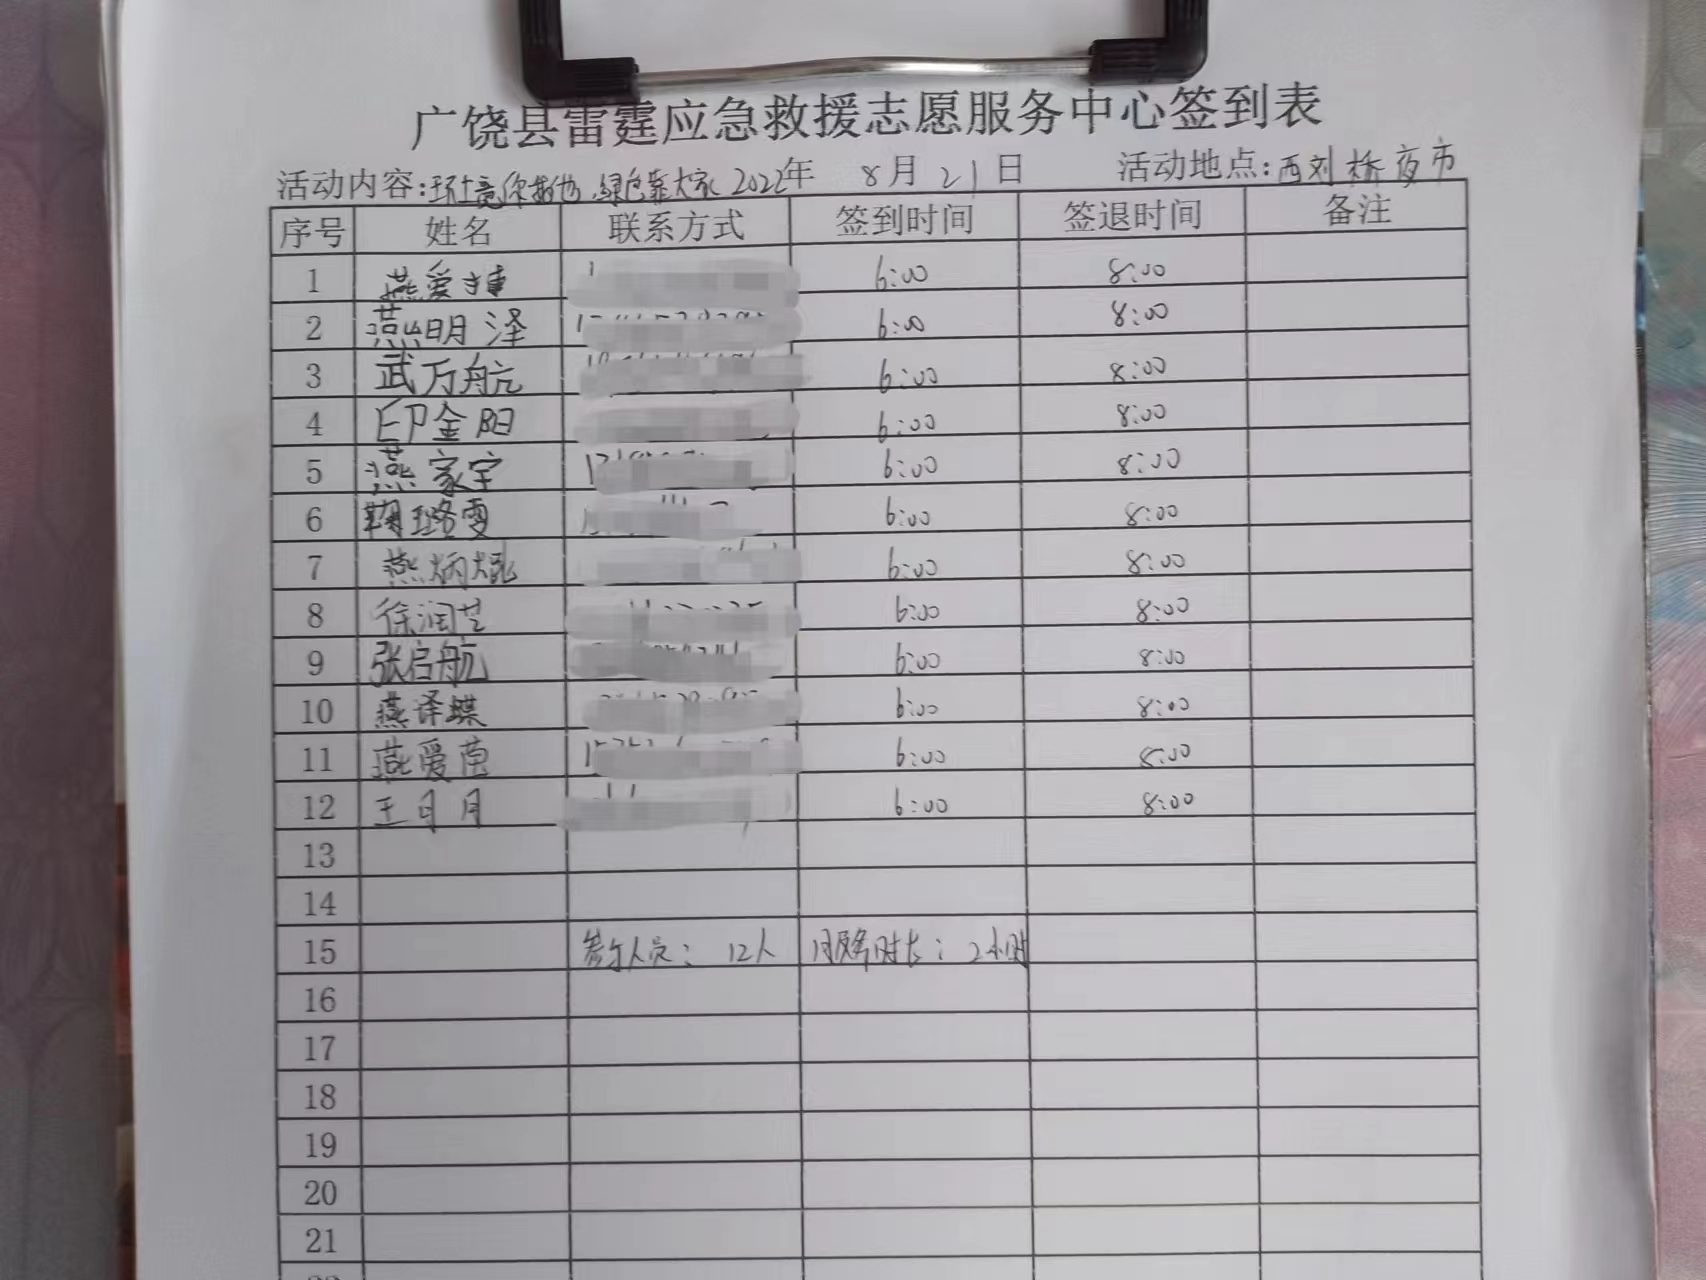 广饶县雷霆应急救援志愿服务中心签到表
活动内容:环境你我他 绿色靠大家 2022年 8月21日 活动地点:西刘桥夜市
序号 姓名 联系方式 签到时间 签退时间 备注
1 燕爱 6:00 8:00
2 燕明泽 6:00 8:00
3 武万航 6:00 8:00
4 印金阳 6:00 8:00
5 燕家宇 6:00 8:00
6 璐雯 6:00 8:00
7 燕炳焜 6:00 8:00
8 徐润芝 6:00 8:00
9 张启航 6:00 8:00
10 燕译蝶 6:00 8:00
11 燕爱菊 6:00 8:00
12 王月 6:00 8:00
13
14
15 参与人员: 12人 服务时长: 2小时
16
17
18
19
20
21